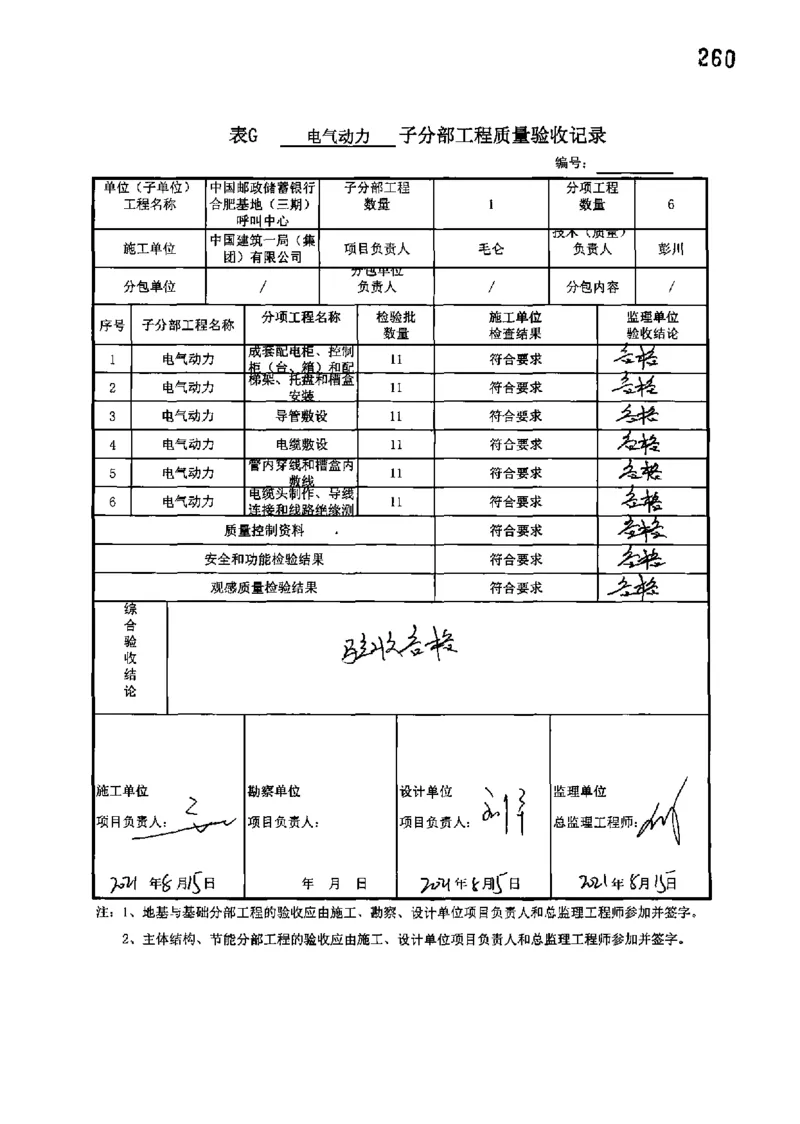 260
表G 电气动力 子分部工程质量验收记录
编号：
单位（子单位） 中国邮政储蓄银行 子分部工程 分项工程
工程名称 合肥基地（三期） 数量 1 数量 6
呼叫中心
施工单位 中国建筑一局（集 项目负责人 毛仑 技术（质量） 彭川
团）有限公司 负责人
分包单位 / 分包单位 / 分包内容 /
负责人
序号 子分部工程名称 分项工程名称 检验批 施工单位 监理单位
数量 检查结果 验收结论
1 电气动力 成套配电柜、控制 11 符合要求 合格
柜（台、箱）和配
2 电气动力 梯架、托盘和槽盒 11 符合要求 合格
安装
3 电气动力 导管敷设 11 符合要求 合格
4 电气动力 电缆敷设 11 符合要求 合格
5 电气动力 管内穿线和槽盒内 11 符合要求 合格
敷线
6 电气动力 电缆头制作、导线 11 符合要求 合格
连接和线路绝缘测
质量控制资料 符合要求 合格
安全和功能检验结果 符合要求 合格
观感质量检验结果 符合要求 合格
综合验收结论 验收合格
施工单位 勘察单位 设计单位 监理单位
项目负责人： 项目负责人： 项目负责人： 总监理工程师：
2021 年 8 月 15 日 年 月 日 2021 年 8 月 15 日 2021 年 8 月 15 日
注：1、地基与基础分部工程的验收应由施工、勘察、设计单位项目负责人和总监理工程师参加并签字。
2、主体结构、节能分部工程的验收应由施工、设计单位项目负责人和总监理工程师参加并签字。